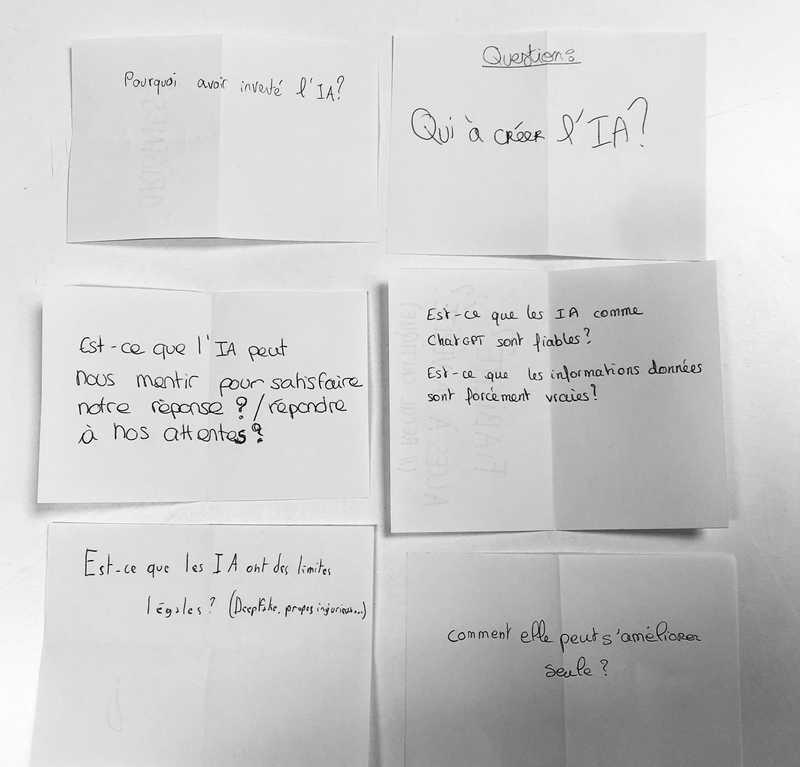 Pourquoi avoir inventé l'IA?
Question:
Qui à créer l'IA?
Est-ce que l'IA peut
nous mentir pour satisfaire
notre réponse ? / répondre
à nos attentes?
Est-ce que les IA comme
ChatGPT sont fiables?
Est-ce que les informations données
sont forcément vraies?
Est-ce que les IA ont des limites
légales? (DeepFake, propos injurieux...)
comment elle peut s'améliorer
seule ?